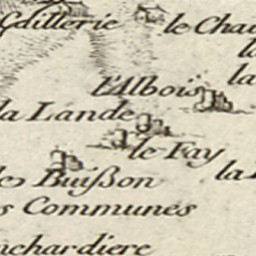 Gaillerie
le Chau
la
l'Alboïs
la Lande
le Fay
la
Buißon
s Communes
nchardiere